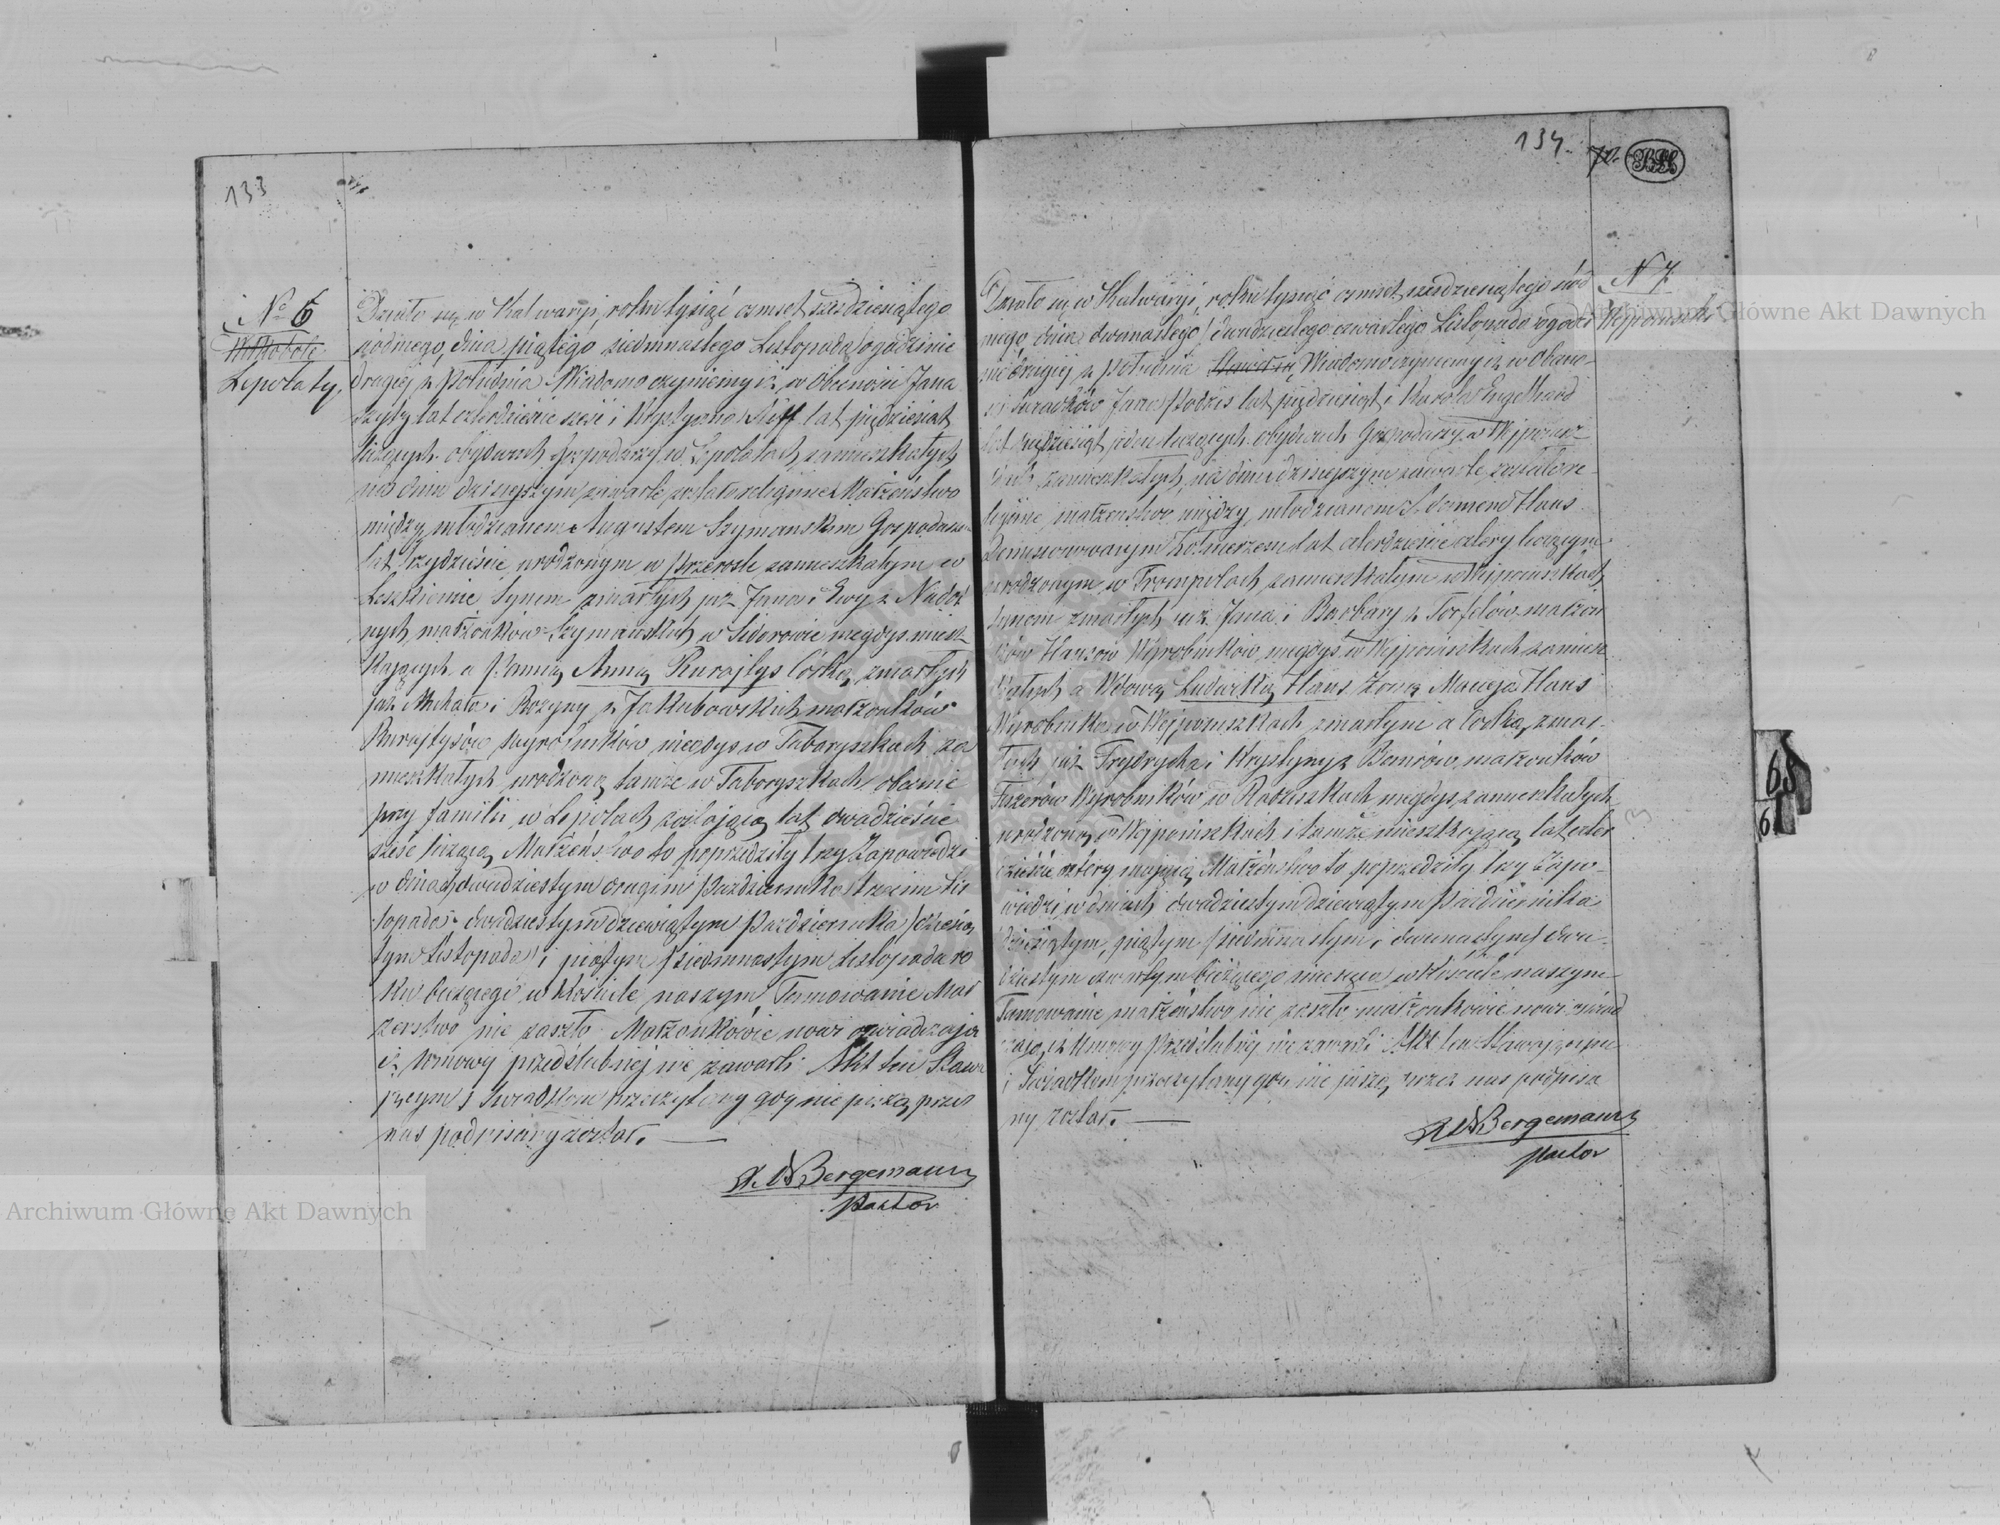 133
No 6
Lepołaty.
Działo się w Kalwaryi, roku tysiąc osmset szesdziesiątego
siodmego, dnia piątego siedmnastego Listopada o godzinie
drugiej z Południa Wiadomo czyniemy iż w Obecności Jana
lat czterdzieście sześć i Krystyana lat piędziesiąt
liczących obydwoch Gospodarzy w Lepołatach zamieszkałych
na dniu dzisiejszym zawarte zostało religijne Małżeństwo
między młodzianem Augustem Szymanskim Gospodarzem
lat trzydzieście urodzonym w Przerosli zamieszkałym w
Synem zmarłych już Jana i Ewy z
nych małżonkow Szymanskich w Sidorowie niegdys miesz
kających a Panną Anną Rurajtys Córką zmarłych
już Michała i Rozyny z Jakubowskich małżonków
Rurajtysów wyrobników niegdys w Taboryszkach za
mieszkałych urodzoną tamże w Taboryszkach obecnie
przy familii w Lepołach zostającą lat dwadzieście
sześć liczącą Małżeństwo to poprzedziły trzy Zapowiedzi
w dniach dwadziestym drugim Pazdziernika trzecim Lis
topada dwadziestym dziewiątym Pazdziernika /dziesią
tym Listopada/ i piątym /siedmnastym Listopada ro
ku bieżącego w Kościele naszym Tamowanie Mał
żeństwa nie zaszło Małżonkowie nowi oswiadczają
iż umowy przedslubnej nie zawarli Akt ten Stawa
jącym i Swiadkom przeczytany gdy nie piszą przez
nas podpisany został.
Bergemann
Pastor
134
N 7
Działo się w Kalwaryi, roku tysiąc osmset szesdziesiątego siod
mego, dnia dwunastego /dwudziestego czwartego Listopada o godzi
nie drugiej z południa Wiadomo czyniemy iż w Obecno
ści Swiadków Jana lat pięćdziesiąt i Karola Engelhard
lat pięćdziesiąt jeden liczących obydwoch Gospodarzy w
zamieszkałych, na dniu dzisiejszym zawarte zostało re
ligijne małżenstwo między młodzianem Hans
Dimisionowanym Żołnierzem lat czterdzieście cztery liczącym
urodzonym w Trompolach zamieszkałym w
synem zmarłych już Jana i Barbary z małżon
ków Hansow Wyrobników niegdys w zamiesz
kałych a Wdową Ludwiką Hans Żoną Macieja Hans
Wyrobnika w zmarłym a Córką zmar
łych już Frydrycha i Krystyny z małżonków
Wyrobników w niegdys zamieszkałych
urodzoną w i tamże mieszkającą lat czter
dzieście cztery mającą Małżeństwo to poprzedziły trzy Zapo
wiedzi w dniach dwadziestym dziewiątym Pazdziernika
dziesiątym, piątym /siedmnastym i dwunastym/ dwu
dziestym czwartym bieżącego miesiąca w Kościele naszym
Tamowanie małżeństwa nie zaszło małżonkowie nowi oswiad
czają iż Umowy Przedślubnej nie zawarli Akt ten Stawającym
i Swiadkom przeczytany gdy nie piszą przez nas podpisa
ny został.
Bergemann
Pastor
Archiwum Główne Akt Dawnych
Archiwum Główne Akt Dawnych